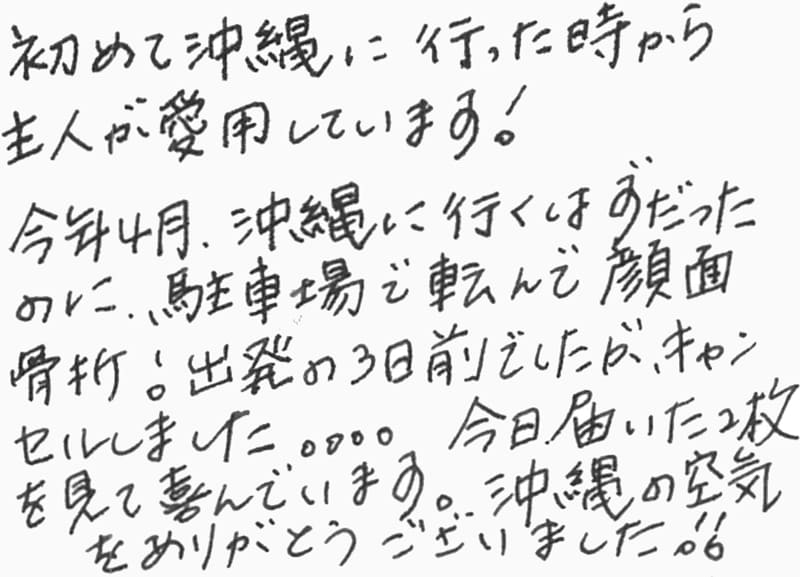 初めて沖縄に行った時から
主人が愛用しています!
今年4月、沖縄に行くはずだった
のに、駐車場で転んで顔面
骨折!出発の3日前でしたが、キャン
セルしました。。。。 今日届いた2枚
を見て喜んでいます。沖縄の空気
をありがとうございました!!